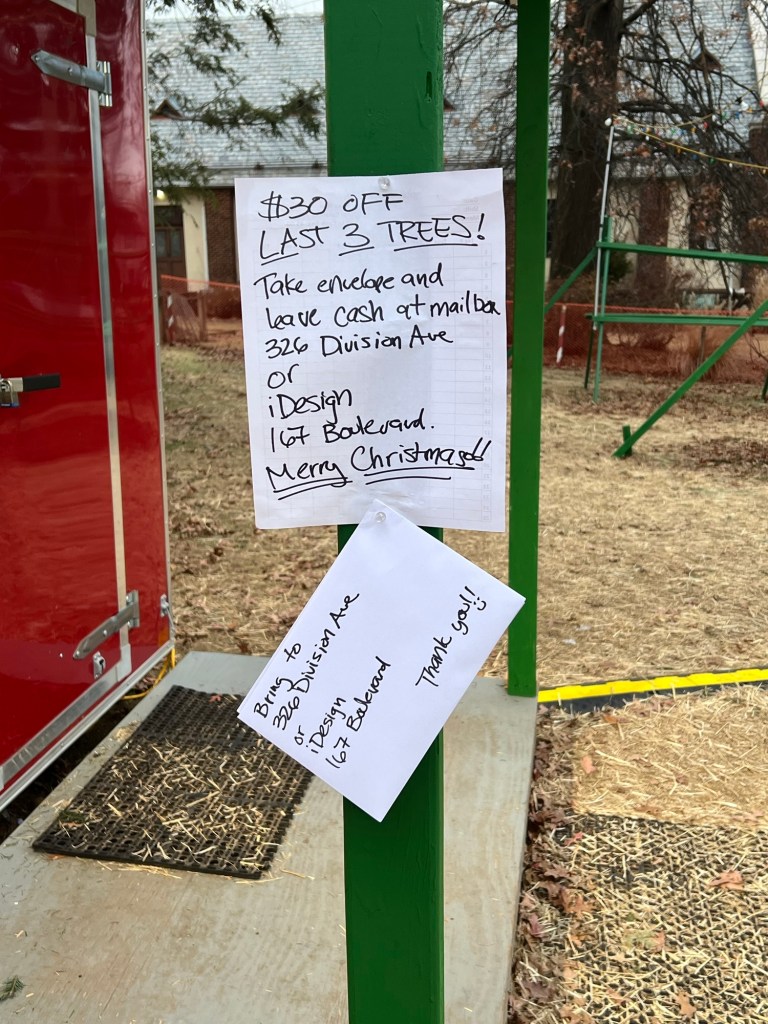 $30 OFF
LAST 3 TREES!
Take envelope and
leave cash at mailbox
326 Division Ave
or
iDesign
167 Boulevard.
Merry Christmas!!
Bring to
326 Division Ave
or
iDesign
167 Boulevard
Thank you!!